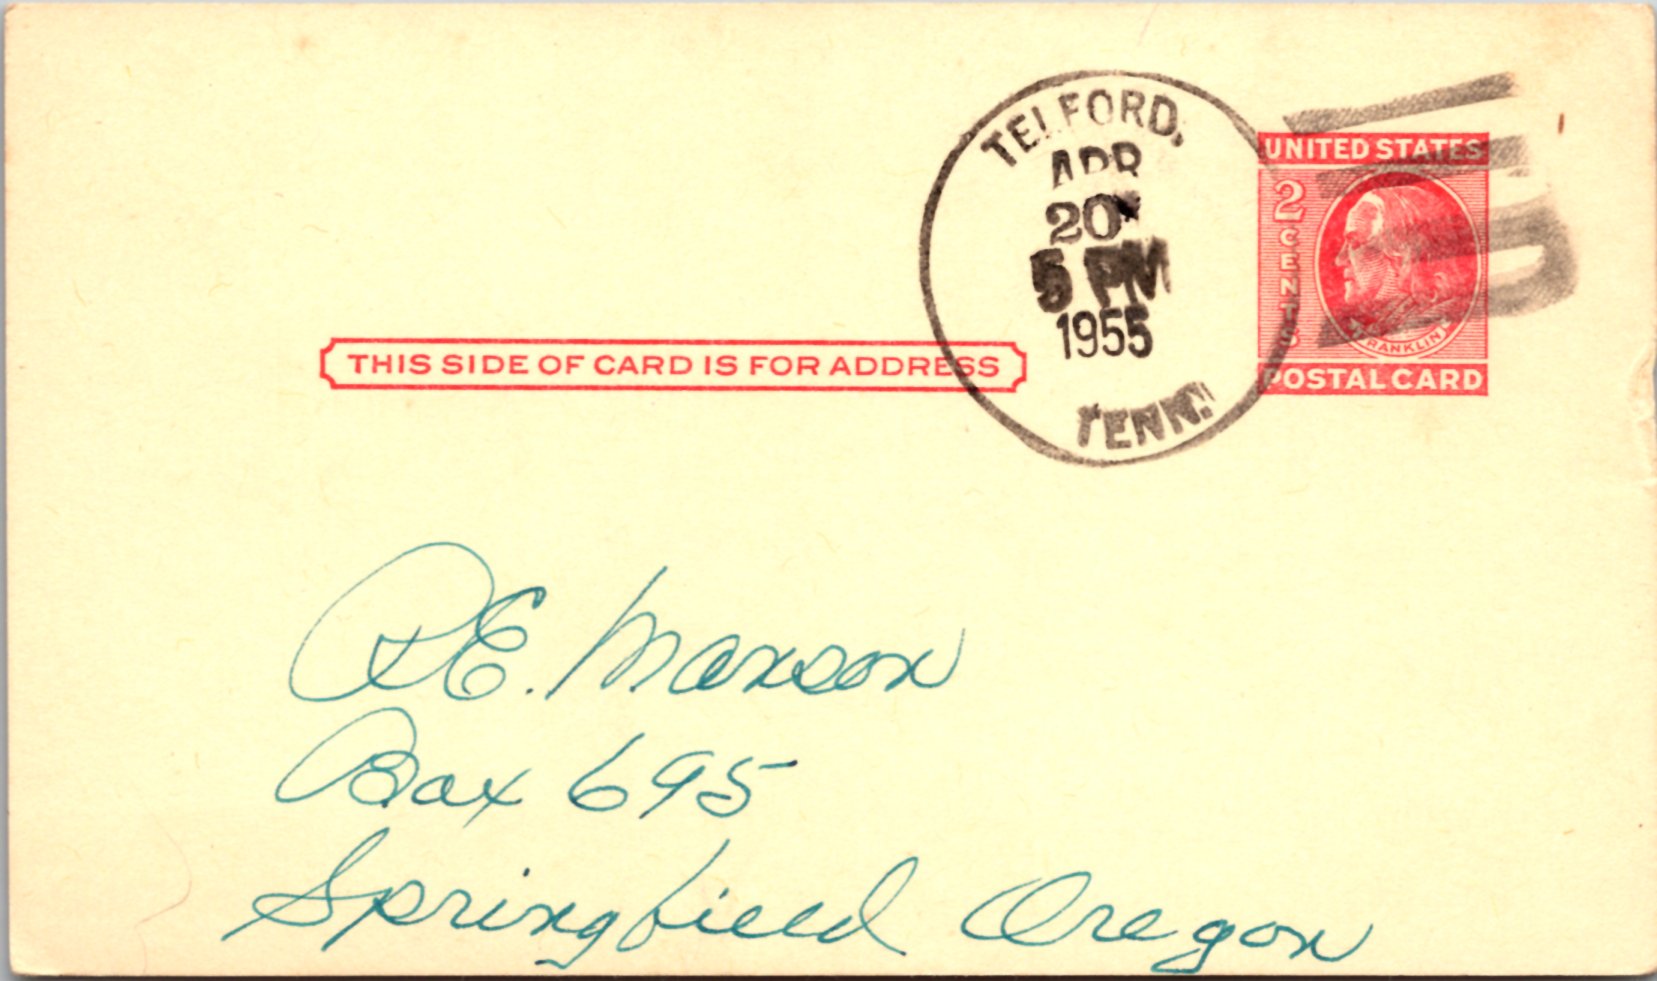 TELFORD,
APR
20
5 PM
1955
TENN.
UNITED STATES
2 CENTS
FRANKLIN
POSTAL CARD
THIS SIDE OF CARD IS FOR ADDRESS
R E. Manson
Box 695
Springfield Oregon